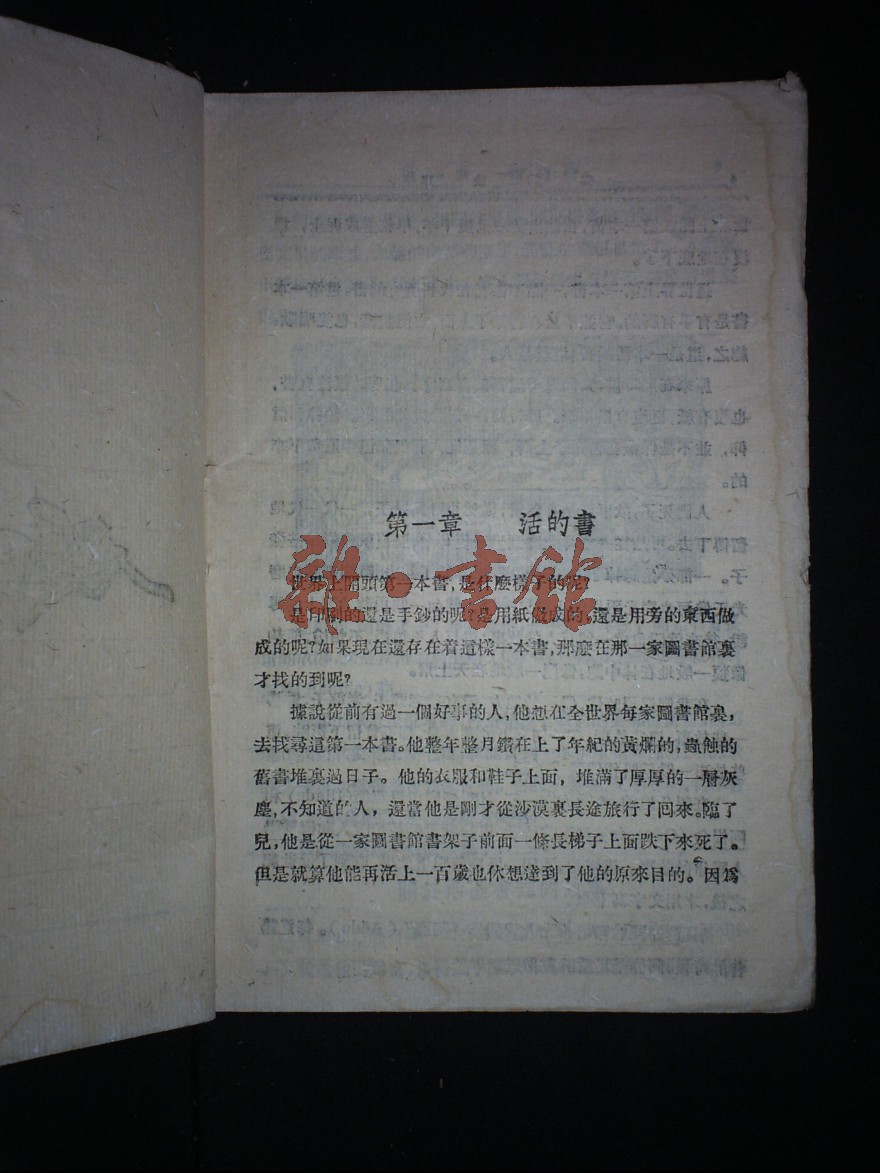 第一章 活的書
世界上開頭第一本書，是什麼樣子的呢？
是印刷的還是手鈔的呢？是用紙做成的，還是用旁的東西做
成的呢？如果現在還存在着這樣一本書，那麼在那一家圖書館裏
才找的到呢？
據說從前有過一個好事的人，他想在全世界每家圖書館裏，
去找尋這第一本書。他整年整月鑽在上了年紀的黃爛的，蟲蝕的
舊書堆裏過日子。他的衣服和鞋子上面，堆滿了厚厚的一層灰
塵，不知道的人，還當他是剛才從沙漠裏長途旅行了回來。臨了
兒，他是從一家圖書館書架子前面一條長梯子上面跌下來死了。
但是就算他能再活上一百歲也休想達到了他的原來目的。因爲
雜·書館